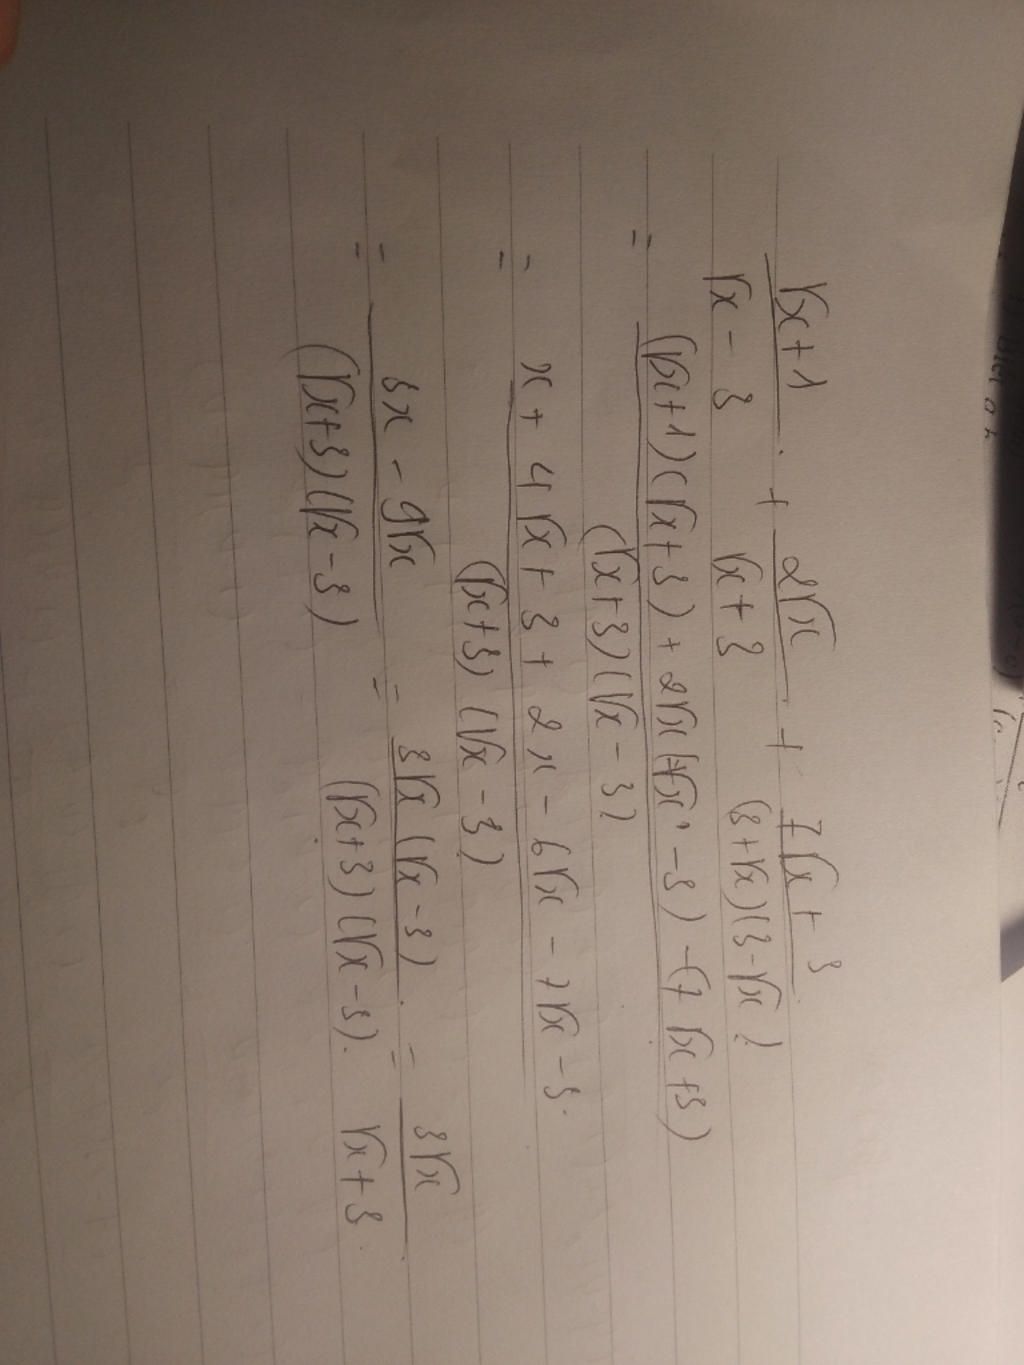 (√x+1)/(√x-3) + 2√x/(√x+3) + (7√x+3)/((3+√x)(3-√x))
= ((√x+1)(√x+3) + 2√x(√x-3) - (7√x+3))/((√x+3)(√x-3))
= (x+4√x+3+2x-6√x-7√x-3)/((√x+3)(√x-3))
= (3x-9√x)/((√x+3)(√x-3)) = (3√x(√x-3))/((√x+3)(√x-3)) = 3√x/(√x+3)